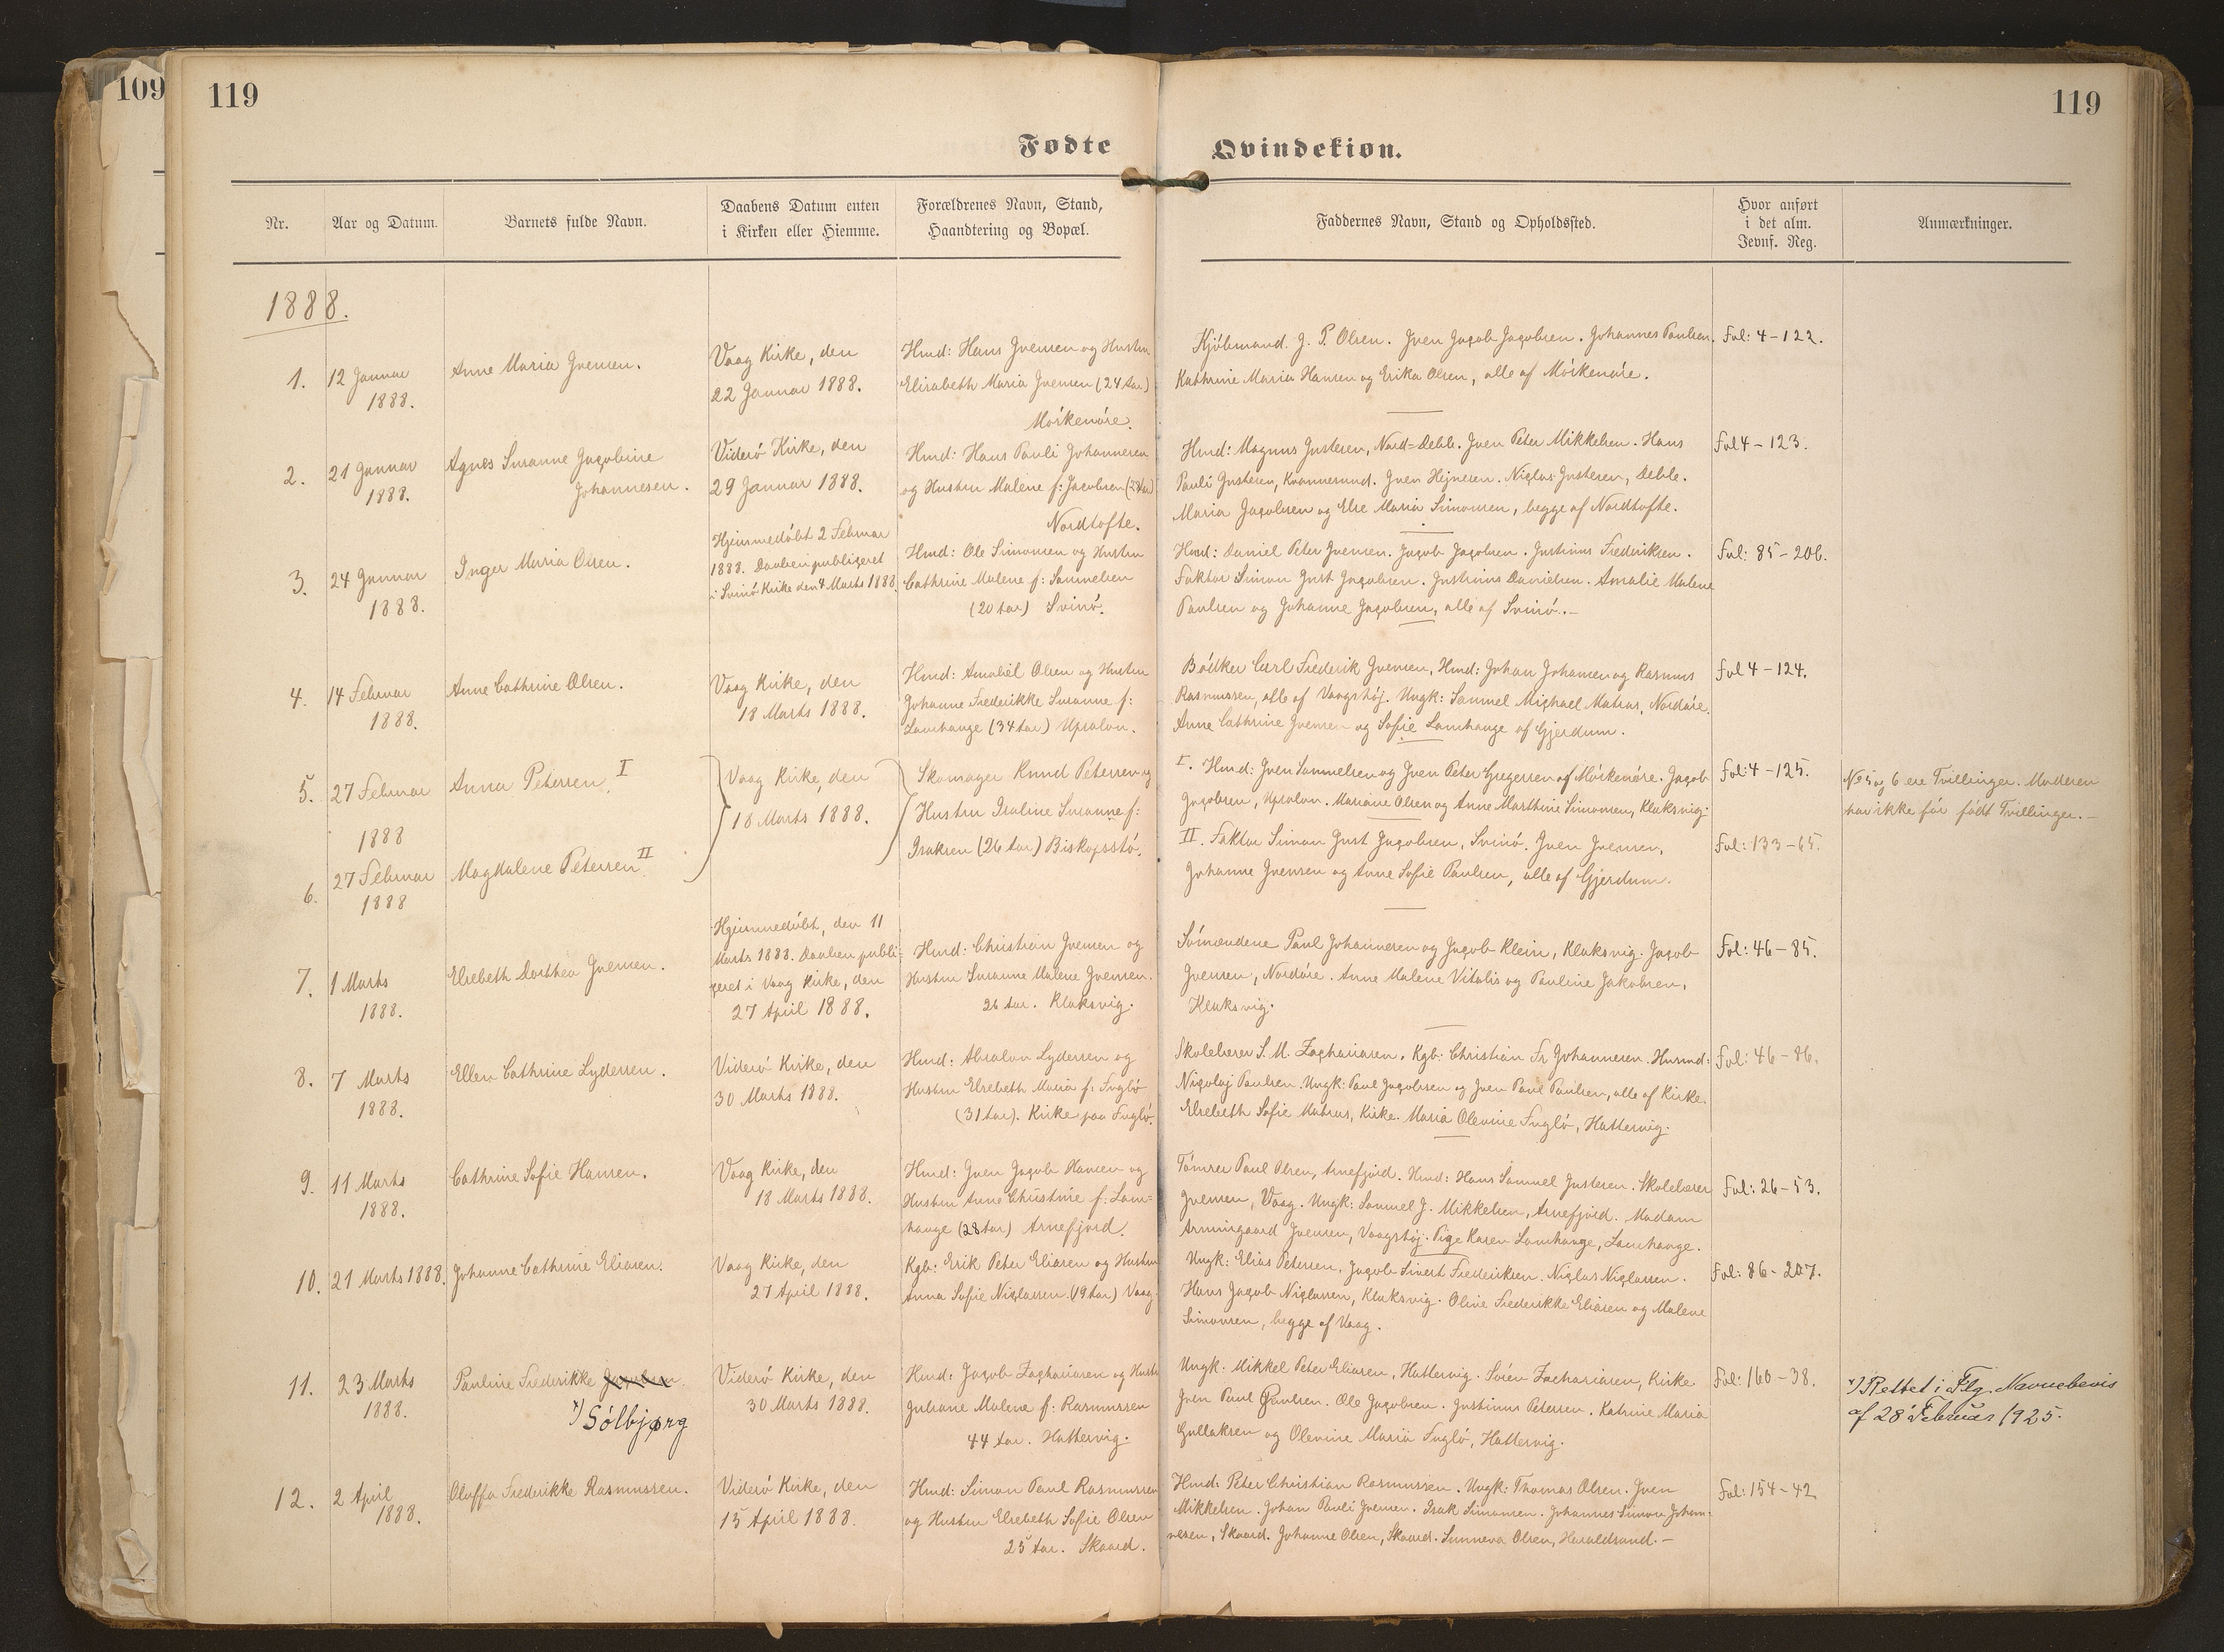 109
119
119
Fødte
Qvindekiøn.
Nr.
Aar og Datum.
Barnets fulde Navn.
Daabens Datum enten
i Kirken eller Hiemme.
Forældrenes Navn, Stand,
Haandtering og Bopæl.
Faddernes Navn, Stand og Opholdssted.
Hvor anført
i det alm.
Jevnf. Reg.
Anmærkninger.
1888.
1.
12 Januar
1888.
Anne Maria Joensen.
Vaag Kirke, den
22 Januar 1888.
Hmd: Hans Joensen og Hustru
Elisabeth Maria Joensen (24 Aar)
Mórkenóre.
Kjóbmand J. P. Olsen. Joen Jacob Jacobsen. Johannes Paulsen.
Kathrine Maria Hansen og Erika Olsen, alle af Mórkenóre.
Fol: 4-122.
2.
21 Januar
1888.
Agnes Susanne Jacobine
Johannesen.
Videró Kirke, den
29 Januar 1888.
Hmd: Hans Pauli Johannesen
og Hustru Malene f: Jacobsen
Nordtofte.
Hmd: Magnus Justesen, Nord=Deble. Joen Peter Mikkelsen. Hans
Pauli Justesen, Kvannesund. Joen Hejnesen. Niclas Justesen, Deble.
Maria Jacobsen og Else Maria Simonsen, begge af Nordtofte.
Fol 4-123.
3.
24 Januar
1888.
Inger Maria Olsen.
Hjemmedóbt 2 Februar
1888. Daaben publiceret
i Svinó Kirke den 4 Marts 1888.
Hmd: Ole Simonsen og Hustru
Cathrine Malene f: Samuelsen
(20 Aar) Svinó.
Hmd: Daniel Peter Joensen. Jacob Jacobsen. Justinus Frederiksen.
Faktor Simon Just Jacobsen. Justinus Danielsen. Amalie Malene
Paulsen og Johanne Jacobsen, alle af Svinó.-
Fol: 85-206.
4.
14 Februar
1888.
Anne Cathrine Olsen.
Vaag Kirke, den
18 Marts 1888.
Hmd: Amaliel Olsen og Hustru
Johanne Frederikke Susanne f:
Lamhauge (34 Aar) Upsalon.
Bódker Carl Frederik Joensen, Hmd: Johan Johansen og Rasmus
Rasmussen, alle af Vaagshój. Ungk: Samuel Michael Matras, Nordóre.
Anne Cathrine Joensen og Sofie Lamhauge af Gjerdum.
Fol 4-124.
5.
27 Februar
1888
Anna Petersen I
Vaag Kirke, den
18 Marts 1888.
Skomager Knud Petersen og
Hustru Isaline Susanne f:
Isaksen (26 Aar) Biskopsstó.
I. Hmd: Joen Samuelsen og Joen Peter Gregersen af Mórkenóre. Jacob
Jacobsen, Upsalon. Mariane Olsen og Anne Marthine Simonsen, Klaksvig.
Fol: 4-125.
No 5 og 6 ere Tvillinger. Moderen
har ikke fór fódt Tvillinger.-
6.
27 Februar
1888
Magdalene Petersen II
II. Faktor Simon Just Jacobsen, Svinó. Joen Joensen,
Johanne Joensen og Anne Sofie Paulsen, alle af Gjerdum.
Fol: 133-65.
7.
1 Marts
1888.
Elsebeth Dorthea Joensen.
Hjemmedóbt, den 11
Marts 1888. Daaben publi-
ceret i Vaag Kirke, den
27 April 1888.
Hmd: Christian Joensen og
Hustru Susanne Malene Joensen.
26 Aar. Klaksvig.
Sómændene Paul Johannesen og Jacob Klein, Klaksvig. Jacob
Joensen, Nordóre. Anne Malene Vitalis og Pauline Jakobsen,
Klaksvig.
Fol: 46-85.
8.
7 Marts
1888.
Ellen Cathrine Lydersen.
Videró Kirke, den
30 Marts 1888.
Hmd: Absalon Lydersen og
Hustru Elsebeth Maria f: Fugló
(31 Aar). Kirke paa Fugló.
Skolelærer S. M. Zachariasen. Kgb: Christian Fr Johannesen. Husmd:
Nicolaj Paulsen. Ungk: Paul Jacobsen og Joen Paul Paulsen, alle af Kirke.
Elsebeth Sofie Matras, Kirke. Maria Olevine Fugló, Hattervig.
Fol: 46-86.
9.
11 Marts
1888.
Cathrine Sofie Hansen.
Vaag Kirke, den
18 Marts 1888.
Hmd: Joen Jacob Hansen og
Hustru Anne Christine f: Lam=
hauge (28 Aar) Arnefjord.
Tómrer Paul Olsen, Arnefjord. Hmd: Hans Samuel Justesen. Skolelærer
Joensen, Vaag. Ungk: Samuel J. Mikkelsen, Arnefjord. Madam
Armingaard Joensen, Vaagshój. Pige Karen Lamhauge, Lamhauge.
Fol: 26-53.
10.
21 Marts 1888.
Johanne Cathrine Eliasen.
Vaag Kirke, den
27 April 1888.
Kgb: Erik Peter Eliasen og Hustru
Anna Sofie Niclassen (19 Aar) Vaag.
Ungk: Elias Petersen. Jacob Sivert Frederiksen. Niclas Niclassen.
Hans Jacob Niclassen, Klaksvig. Oline Frederikke Eliasen og Malene
Simonsen, begge af Vaag.
Fol: 86-207.
11.
23 Marts
1888.
Pauline Frederikke
*) Sólbjørg
Videró Kirke, den
30 Marts 1888.
Hmd: Jacob Zachariasen og Hustru
Juliane Malene f: Rasmussen
44 Aar. Hattervig.
Ungk: Mikkel Peter Eliasen, Hattervig. Sóren Zachariasen, Kirke.
Joen Paul Paulsen. Ole Jacobsen. Justinus Petersen. Katrine Maria
Gullaksen og Olevine Maria Fugló, Hattervig.
Fol: 160-38.
*) Rettet i Flg. Navnebevis
af 28' Februar 1925.
12.
2 April
1888.
Oluffa Frederikke Rasmussen.
Videró Kirke, den
15 April 1888.
Hmd: Simon Paul Rasmussen
og Hustru Elsebeth Sofie Olsen
25 Aar. Skaard.
Hmd: Peter Christian Rasmussen. Ungk: Thomas Olsen. Joen
Mikkelsen. Johan Pauli Joensen. Isak Simonsen. Johannes Simon Johan-
nesen, Skaard. Johanne Olsen, Skaard. Sunneva Olsen, Haraldsund.-
Fol: 154-42